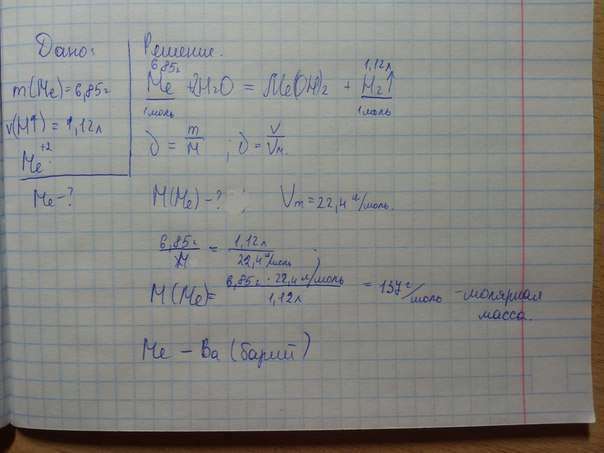 Дано:
m(Me)=6,85г
v(H↑)=1,12л
Me⁺²
Me-?
Решение.
6,85г 1,12л
Me + 2H₂O = Me(OH)₂ + H₂↑
1моль 1моль
ν = m/M ; ν = V/Vm.
M(Me)-? ; Vm = 22,4 л/моль.
6,85г/M = 1,12л/22,4 л/моль ;
M(Me) = 6,85г · 22,4 л/моль / 1,12л = 137 г/моль - молярная
масса.
Me – Ba (барий)